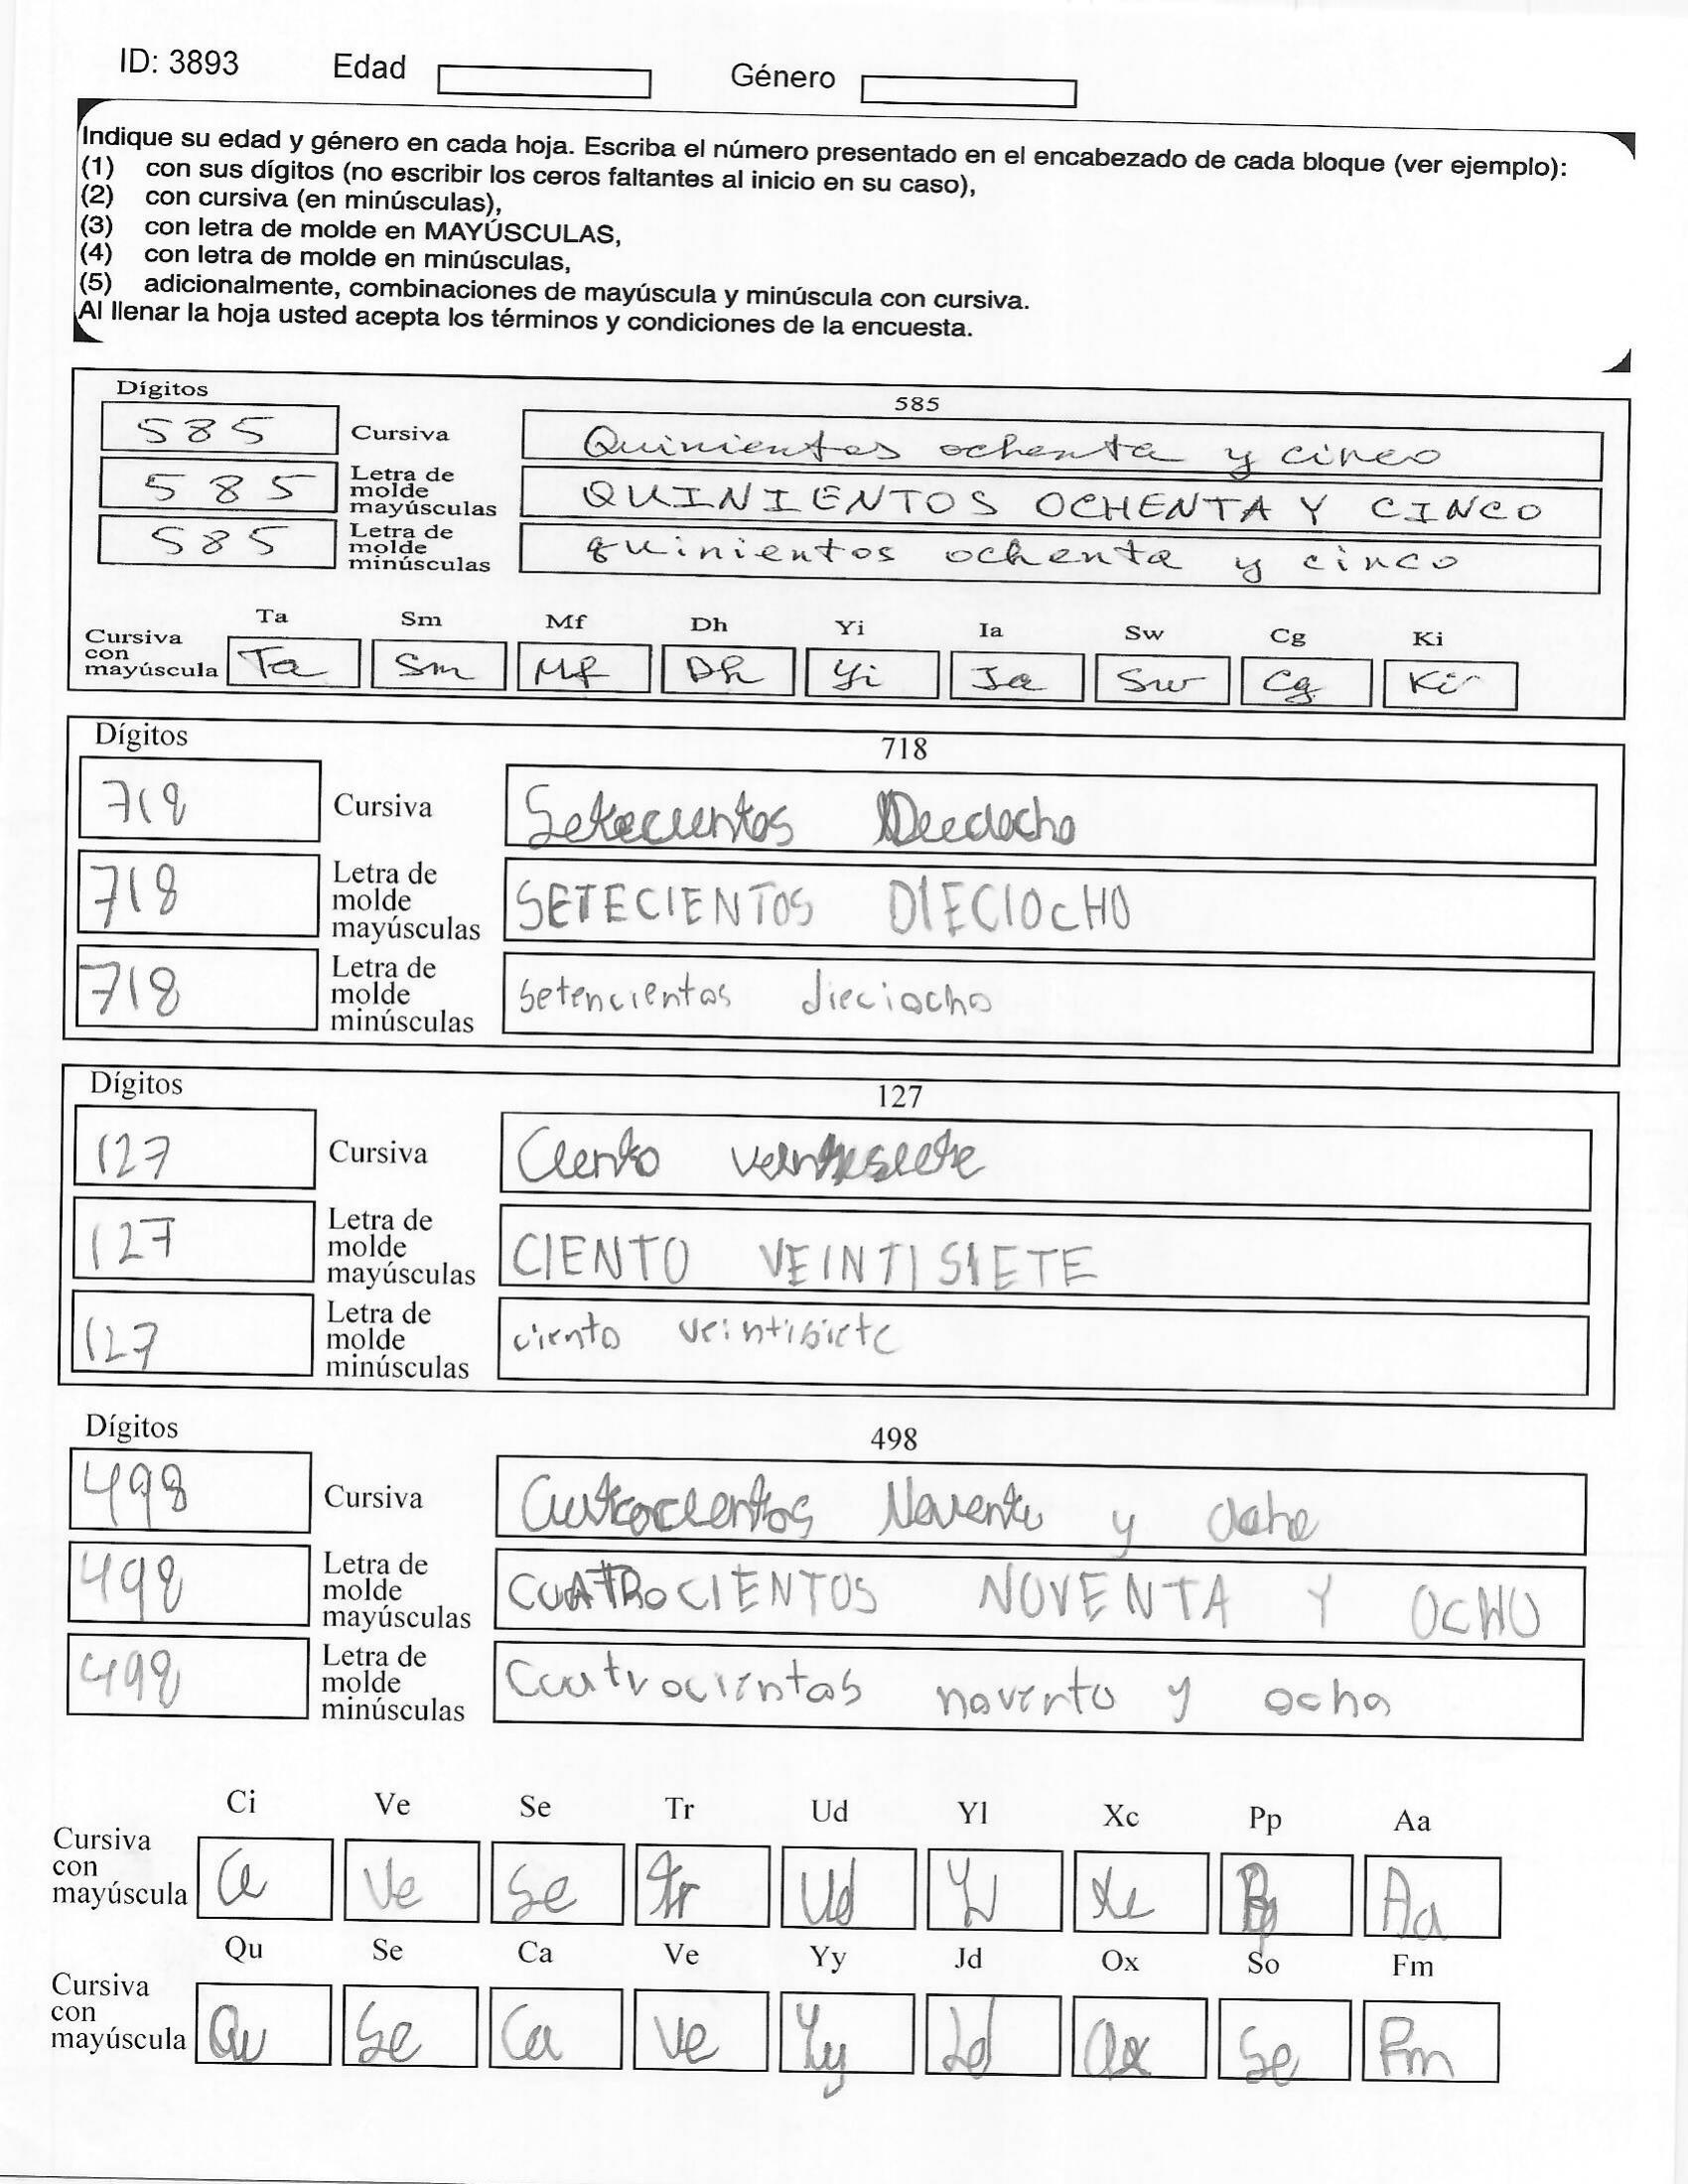 ID: 3893 Edad Género
Indique su edad y género en cada hoja. Escriba el número presentado en el encabezado de cada bloque (ver ejemplo):
(1) con sus dígitos (no escribir los ceros faltantes al inicio en su caso),
(2) con cursiva (en minúsculas),
(3) con letra de molde en MAYÚSCULAS,
(4) con letra de molde en minúsculas,
(5) adicionalmente, combinaciones de mayúscula y minúscula con cursiva.
Al llenar la hoja usted acepta los términos y condiciones de la encuesta.
Dígitos 585
585 Cursiva Quinientos ochenta y cinco
585 Letra de molde mayúsculas QUINIENTOS OCHENTA Y CINCO
585 Letra de molde minúsculas quinientos ochenta y cinco
Ta Sm Mf Dh Yi Ia Sw Cg Ki
Cursiva con mayúscula Ta Sm Mf Dh Yi Ia Sw Cg Ki
Dígitos 718
718 Cursiva Setecientos Dieciocho
718 Letra de molde mayúsculas SETECIENTOS DIECIOCHO
718 Letra de molde minúsculas setencientos dieciocho
Dígitos 127
127 Cursiva Ciento veintisiete
127 Letra de molde mayúsculas CIENTO VEINTISIETE
127 Letra de molde minúsculas ciento veintisiete
Dígitos 498
498 Cursiva Cuatrocientos Noventa y ocho
498 Letra de molde mayúsculas CUATROCIENTOS NOVENTA Y OCHO
498 Letra de molde minúsculas Cuatrocientos noventa y ocho
Ci Ve Se Tr Ud Yl Xc Pp Aa
Cursiva con mayúscula Ci Ve Se Tr Ud Yl Xc Pp Aa
Qu Se Ca Ve Yy Jd Ox So Fm
Cursiva con mayúscula Qu Se Ca Ve Yy Jd Ox So Fm